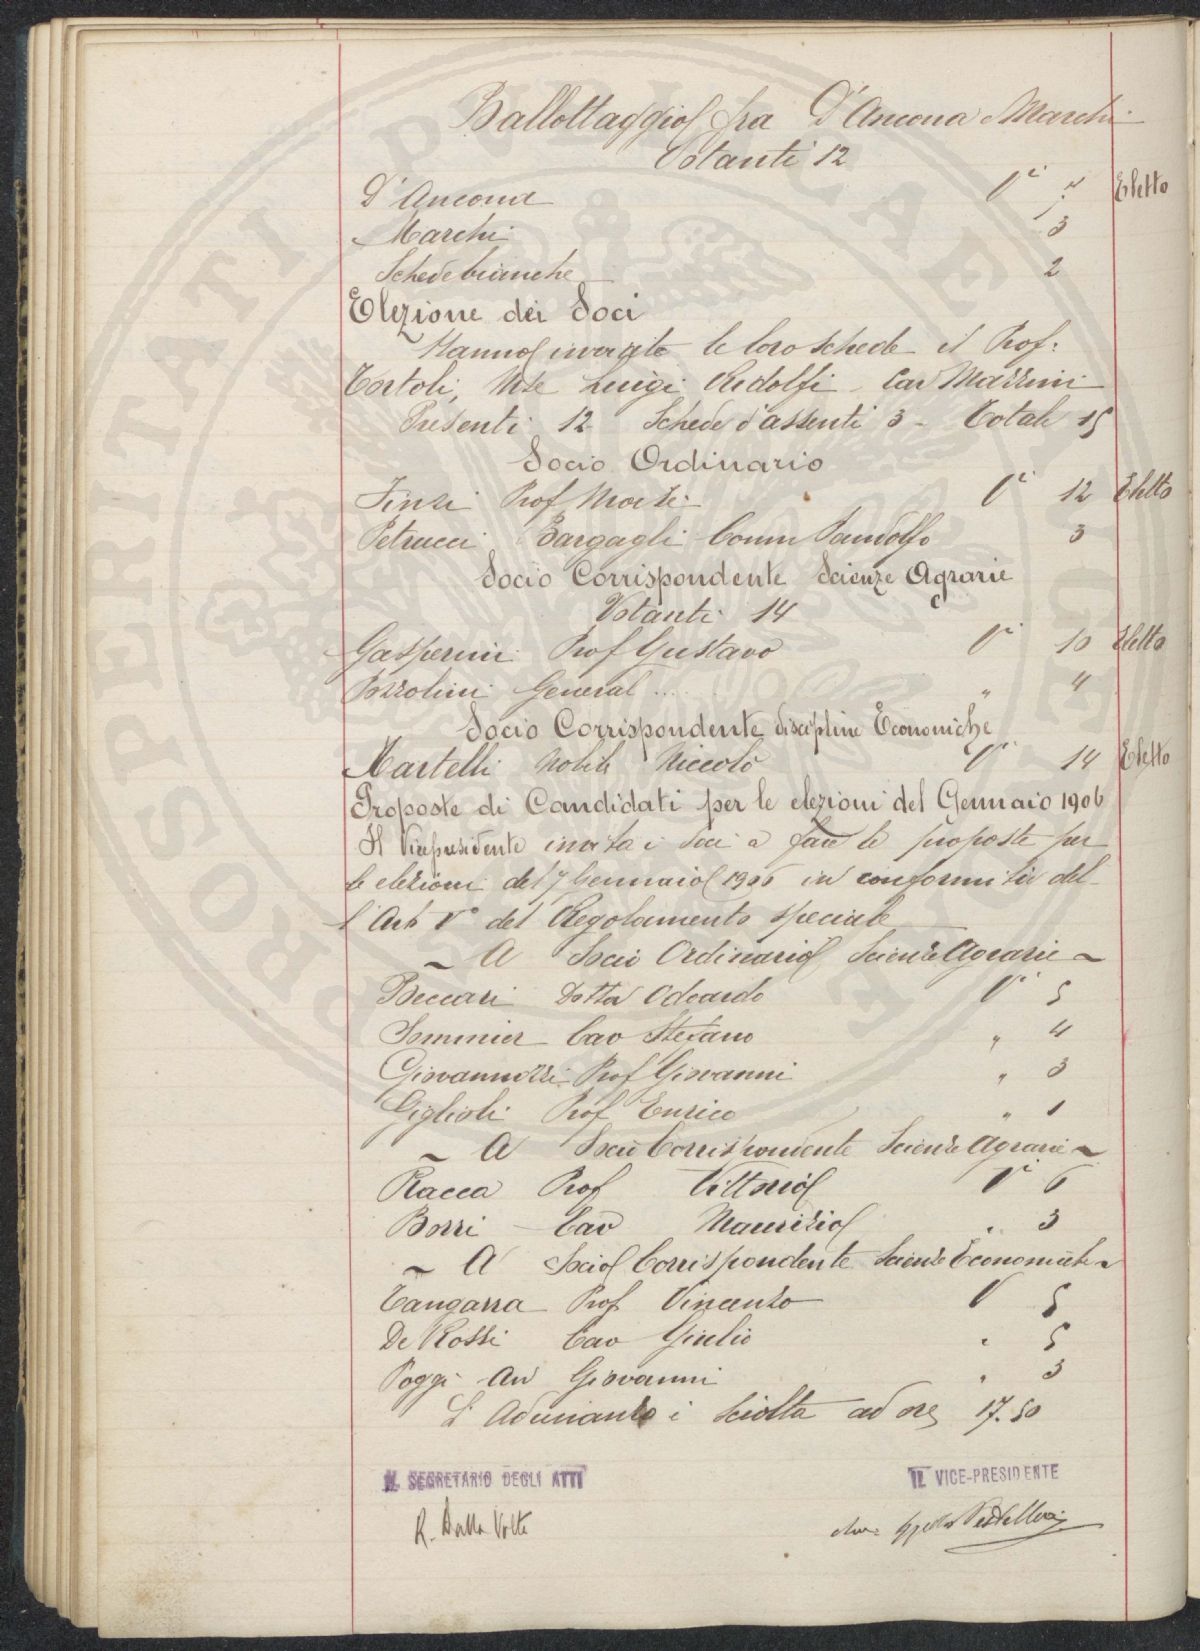 Ballottaggio fra D'Ancona e Marchi
Votanti 12
D'Ancona Vi 7 Eletto
Marchi 3
Schede bianche 2
Elezione dei Soci
Hanno inviate le loro schede il Prof:
Tortoli, Mse Luigi Ridolfi - Cav Mazzini
Presenti 12 Schede d'assenti 3 - Totale 15
Socio Ordinario
Finzi Prof Moisè Vi 12 Eletto
Petrucci Bargagli Comm Pandolfo 3
Socio Corrispondente Scienze Agrarie
Votanti 14
Gasperini Prof Gustavo Vi 10 Eletto
Pozzolini General .... " 4
Socio Corrispondente discipline Economiche
Martelli Nobile Niccolò Vi 14 Eletto
Proposte di Candidati per le elezioni del Gennaio 1906
Il Vicepresidente invita i Soci a fare le proposte per
le elezioni del 7 Gennaio 1906 in conformità del-
l'Art V° del Regolamento speciale
~ A Socio Ordinario Scienze Agrarie ~
Beccari Dottor Odoardo Vi 5
Sommier Cav Stefano " 4
Giovannozzi Prof Giovanni " 3
Giglioli Prof Enrico " 1
~ A Socio Corrispondente Scienze Agrarie ~
Racca Prof Vittorio Vi 6
Borri Cav Maurizio " 3
~ A Socio Corrispondente Scienze Economiche ~
Tangorra Prof Vincenzo V 5
De Rossi Cav Giulio " 5
Poggi Avv Giovanni " 3
L'Adunanza è sciolta ad ore 17.50
IL SEGRETARIO DEGLI ATTI IL VICE-PRESIDENTE
R. Dalla Volta
PROSPERITATI PUBLICAE AUGENDAE